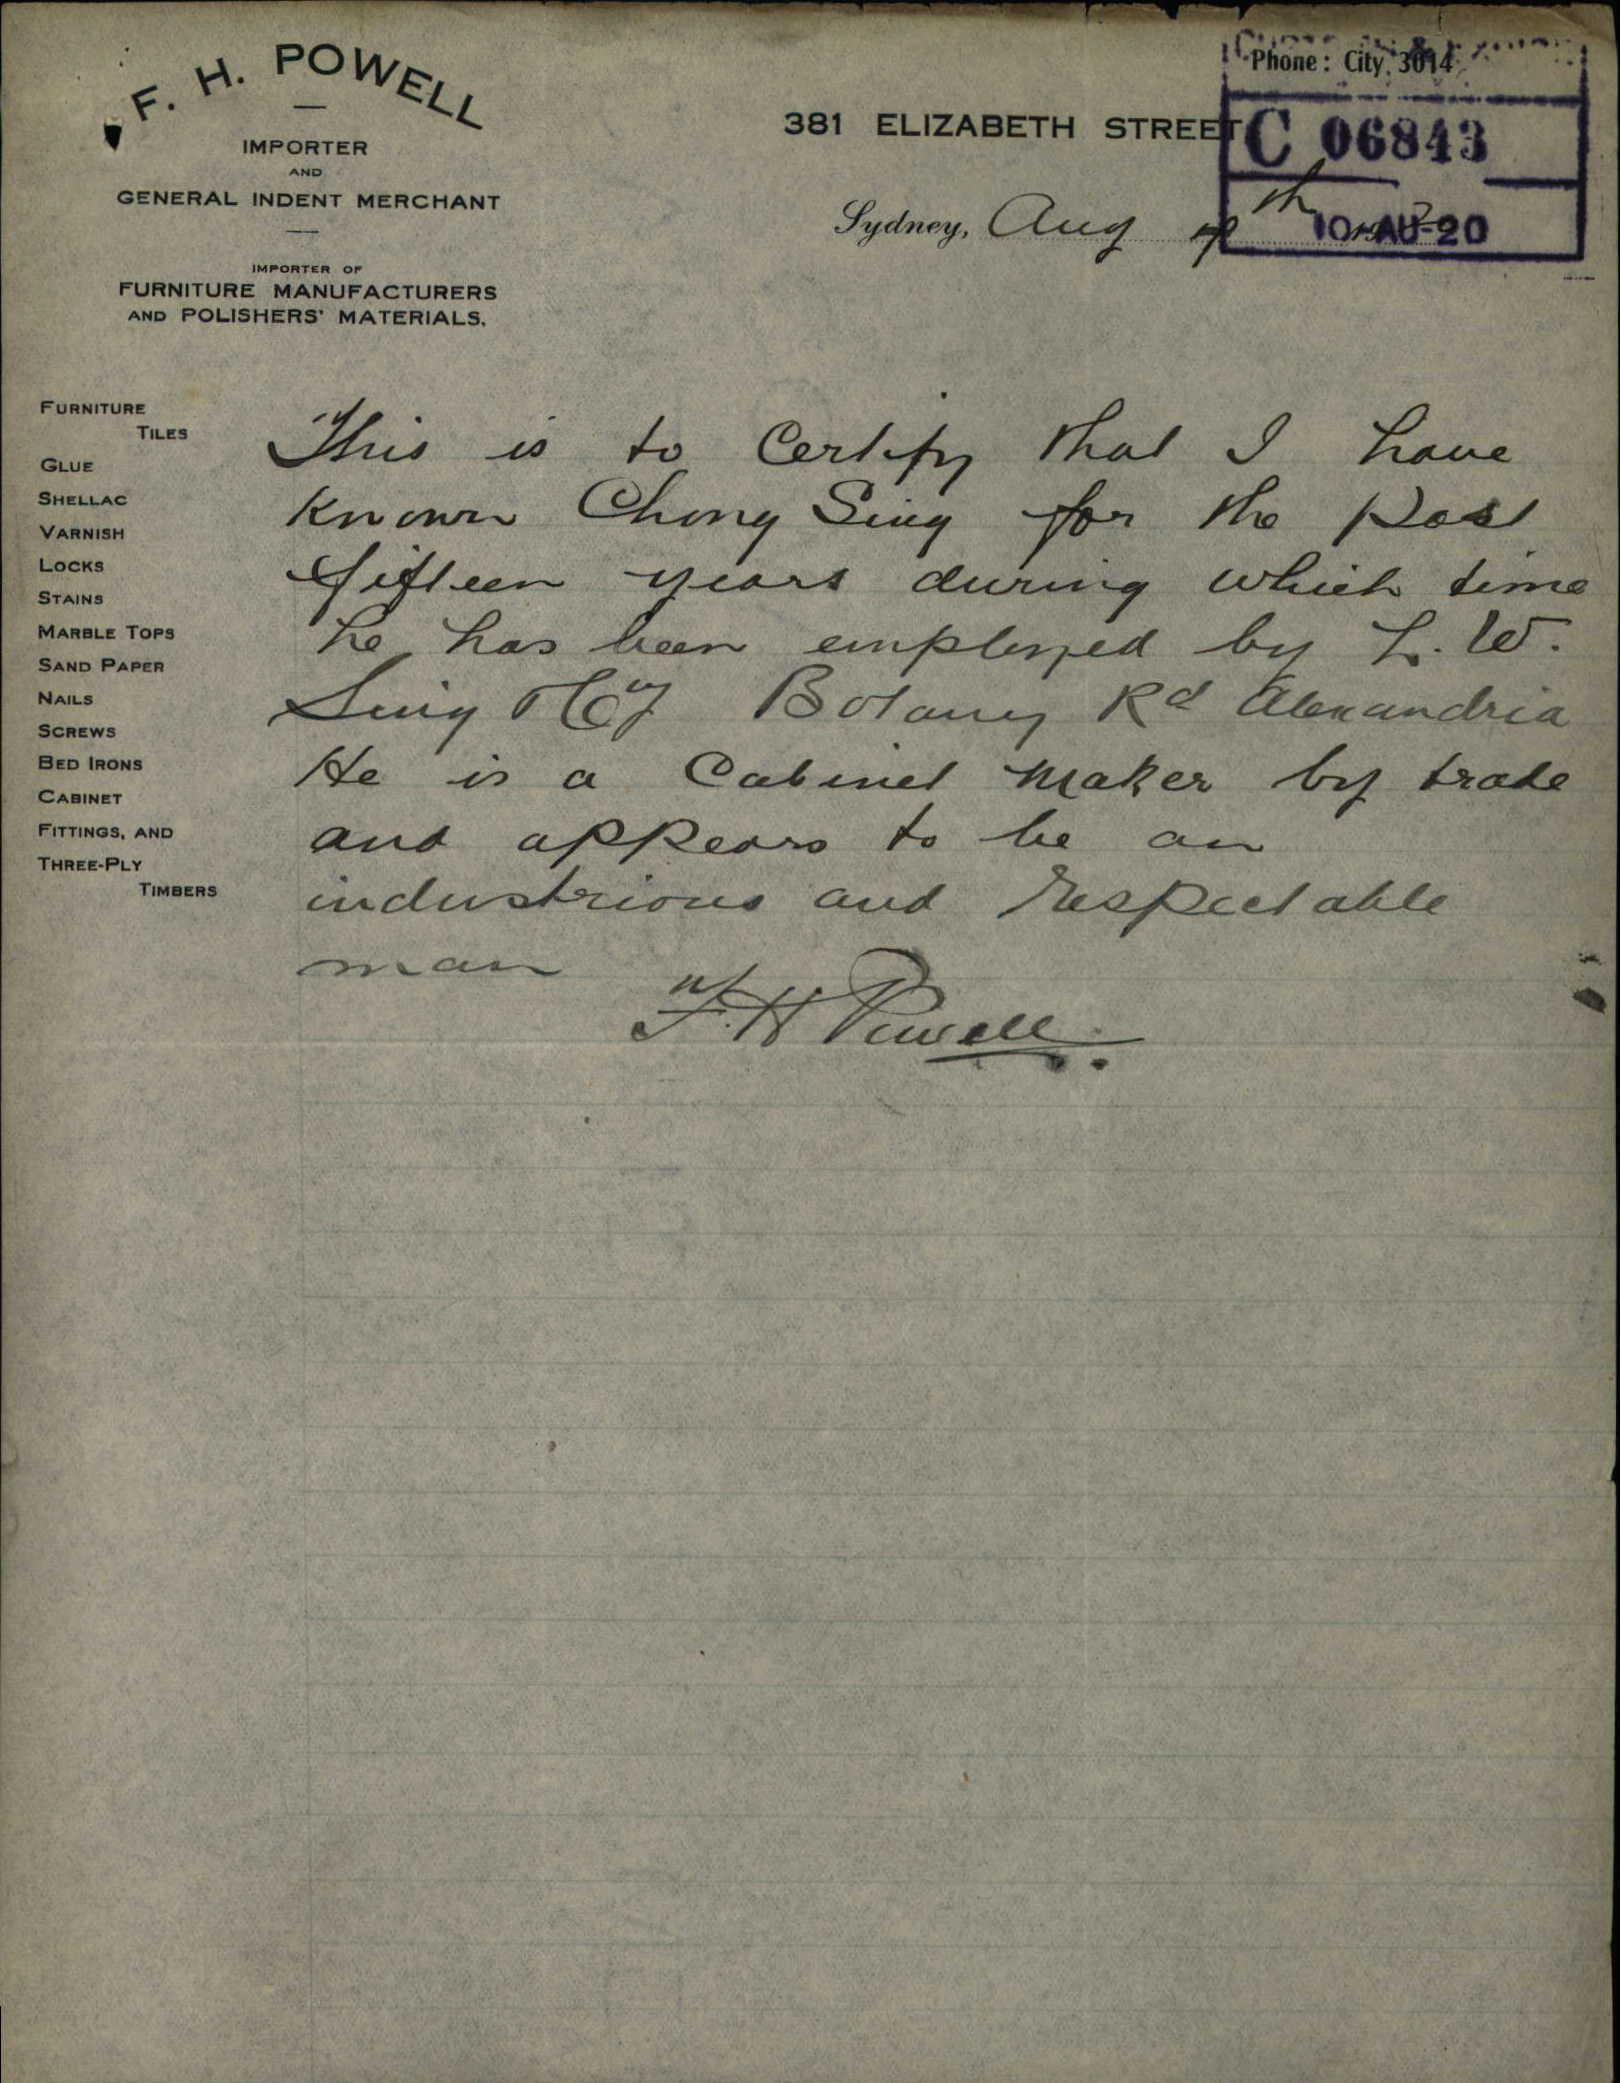 F. H. POWELL
IMPORTER
AND
GENERAL INDENT MERCHANT
IMPORTER OF
FURNITURE MANUFACTURERS
AND POLISHERS' MATERIALS.
Phone: City, 3014
381 ELIZABETH STREET
C 06843
Sydney, Aug th
10-AU-20
FURNITURE
TILES
GLUE
SHELLAC
VARNISH
LOCKS
STAINS
MARBLE TOPS
SAND PAPER
NAILS
SCREWS
BED IRONS
CABINET
FITTINGS, AND
THREE-PLY
TIMBERS
This is to Certify that I have
known Chong Sing for the past
fifteen years during which time
he has been employed by L. W.
Sing & Coy Botany Rd Alexandria
He is a Cabinet Maker by trade
and appears to be an
industrious and respectable
man
F. H Powell